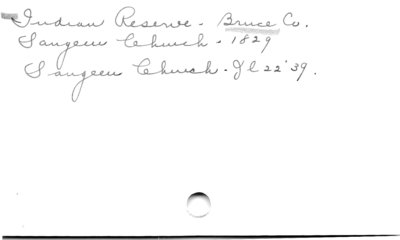 Indian Reserve - Bruce Co.
Saugeen Church - 1829
Saugeen Church - Jl 22'39.